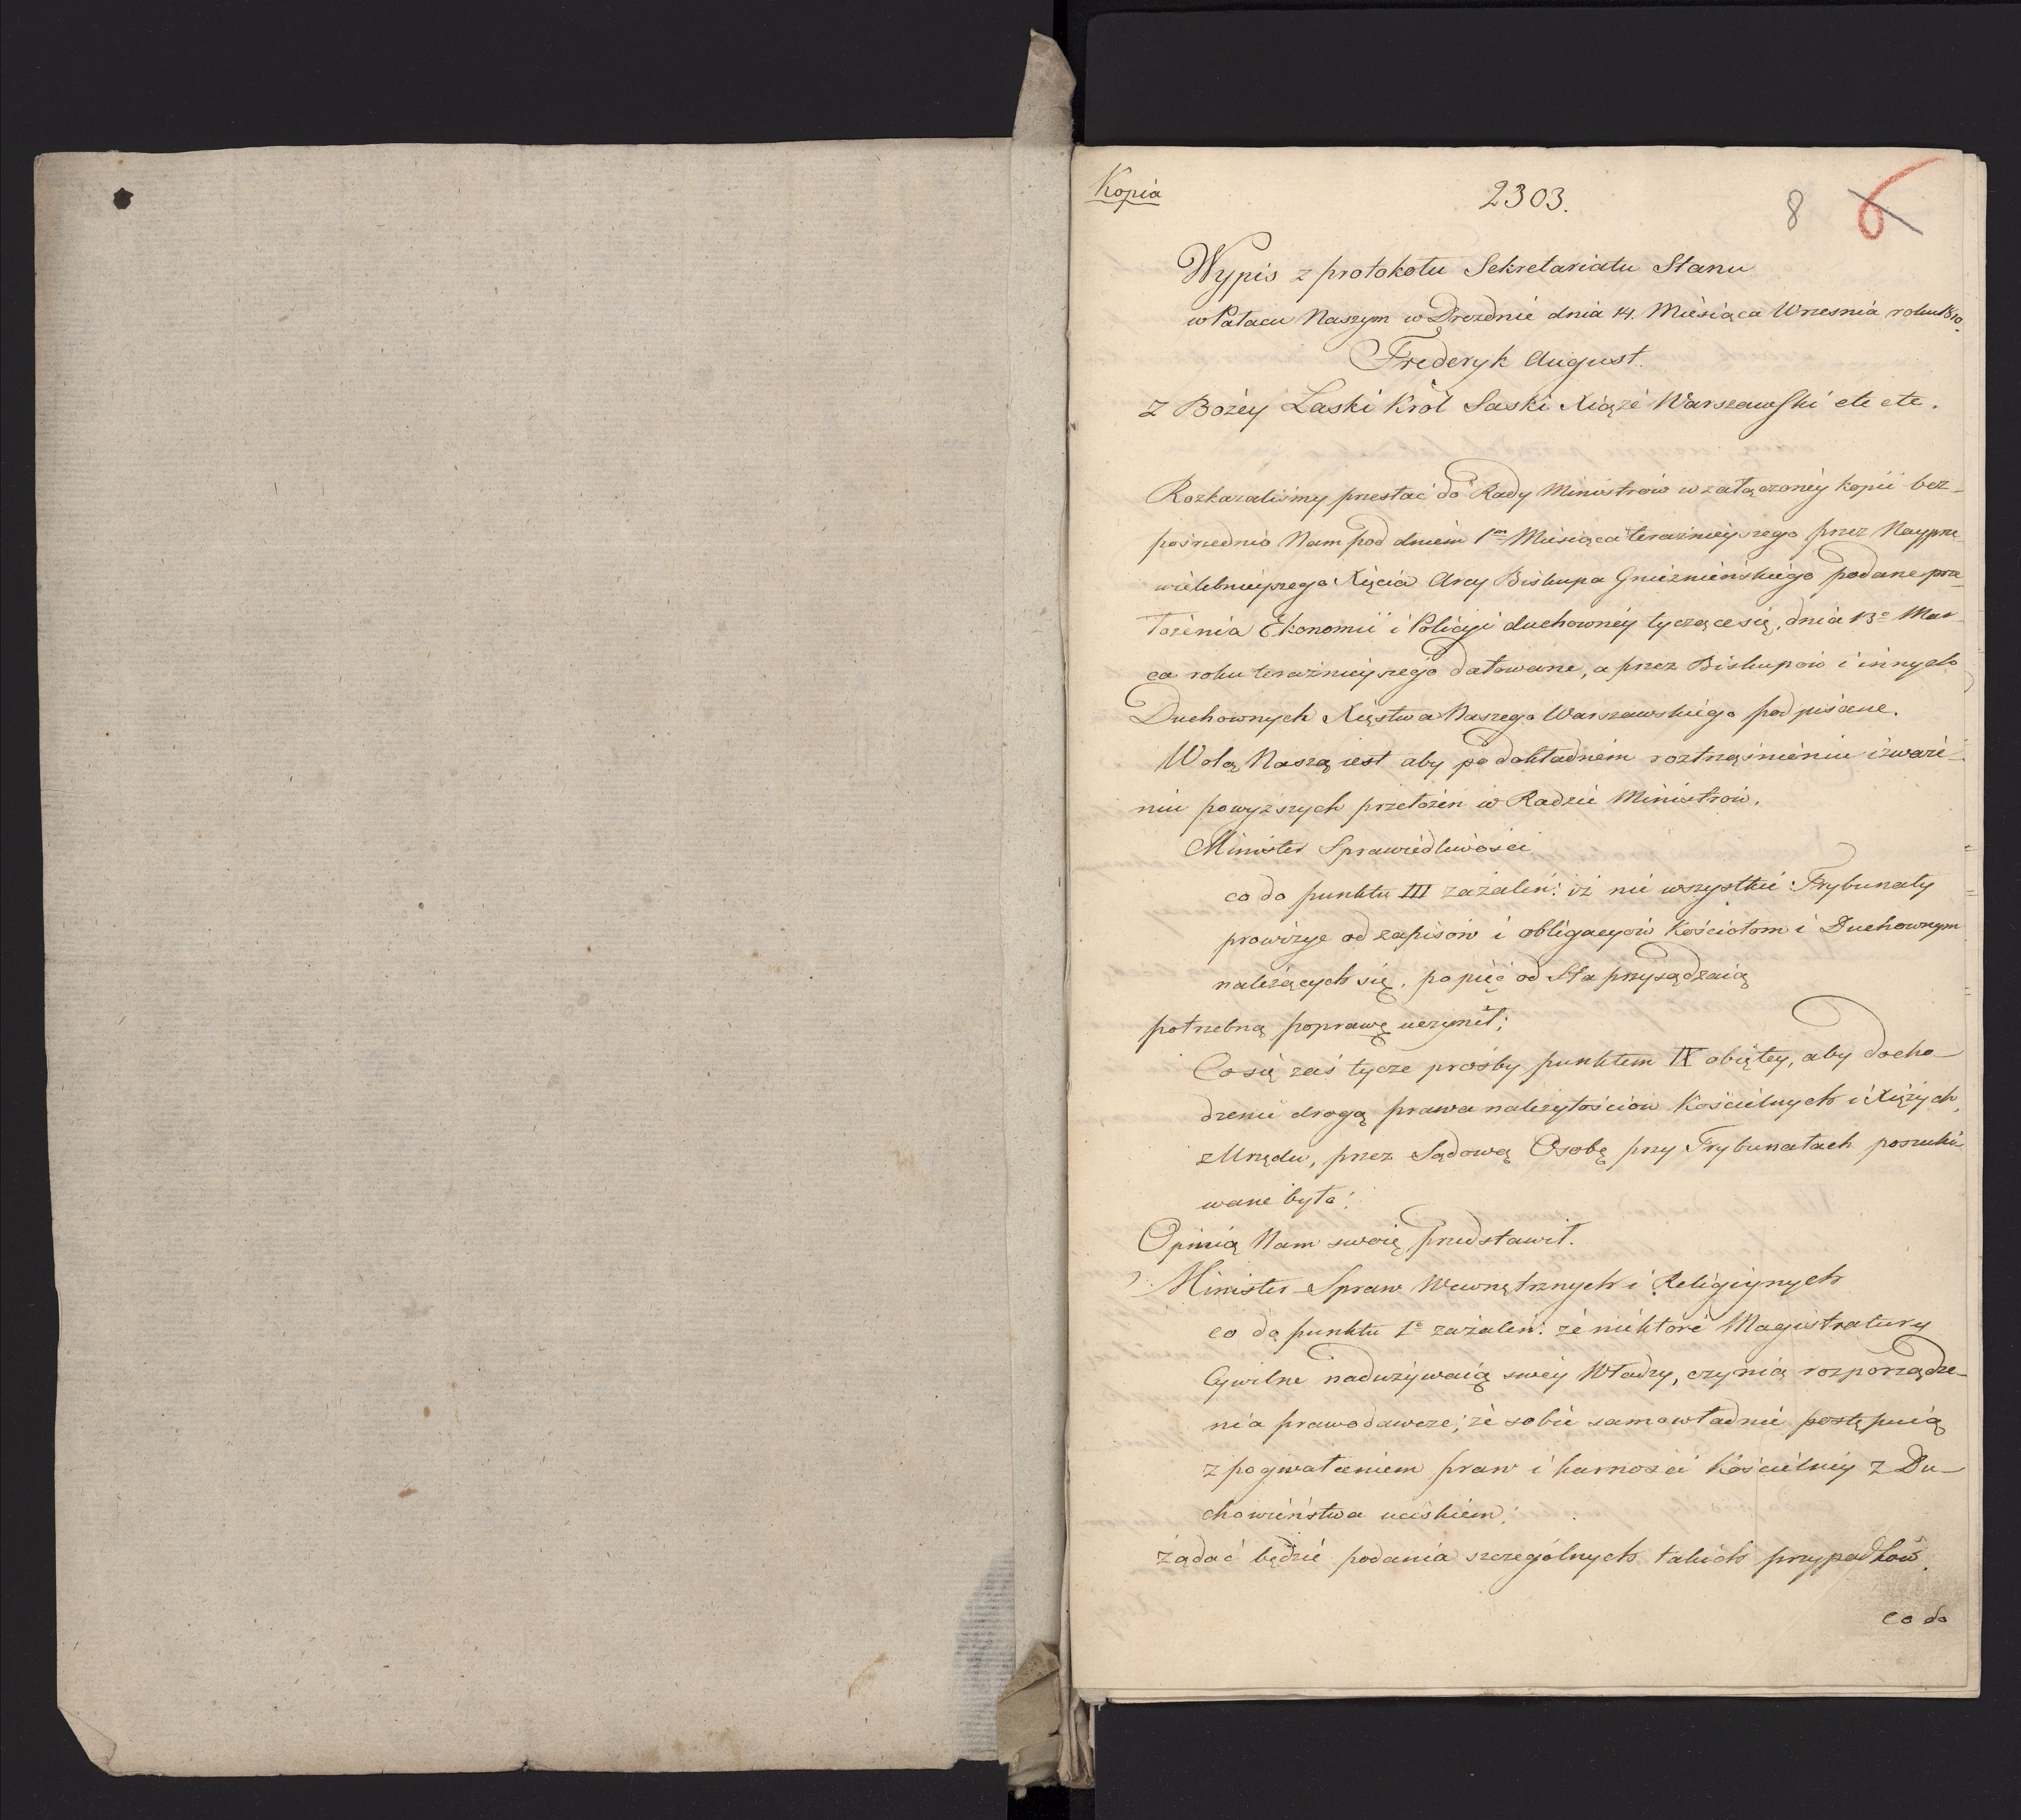 Kopia
2303.
8 6
Wypis z protokołu Sekretariatu Stanu
w Pałacu Naszym w Dreźnie dnia 14. Miesiąca Wrzesnia roku 1810.
Frederyk August.
Z Bożey Łaski Król Saski Xiążę Warszawski etc etc.
Rozkazaliśmy przesłać do Rady Ministrów w załączoney kopii bez-
pośrednio Nam pod dniem 1m Miesiąca teraźnieyszego przez Nayprze-
wielebnieyszego Xięcia Arcy Biskupa Gnieznieńskiego podane prze-
łożenia Ekonomii i Policyi duchowney tyczące się, dnia 13o Mar-
ca roku teraźnieyszego datowane, a przez Biskupów i innych
Duchownych Xięstwa Naszego Warszawskiego podpisane.
Wolą Naszą iest aby po dokładnem roztrząśnieniu i zwarze-
niu powyższych przełożen w Radzie Ministrów.
Minister Sprawiedliwości
co do punktu III zażaleń: iż nie wszystkie Trybunały
prowizye od zapisów i obligacyów Kościołom i Duchownym
należących się, po pięć od Sta przysądzaią
potrzebną poprawę uczynił;
Co się zaś tycze prośby punktem IX obiętey, aby docho-
dzenie drogą prawa należytościów Kościelnych i Xiężych,
z Urzędu, przez Sądową Osobę przy Trybunałach poszuki
wane było:
Opinią Nam swoię przedstawił.
Minister Spraw Wewnętrznych i Religiynych
co do punktu 1o zażaleń: że niektore Magistratury
Cywilne nadużywaią swey Władzy, czynią rozporządze-
nia prawodawcze; że sobie samowładnie postępuią
z pogwałceniem praw i karności Kościelney z Du-
chowieństwa uciskiem:
żądać będzie podania szczególnych takich przypadków.
co do